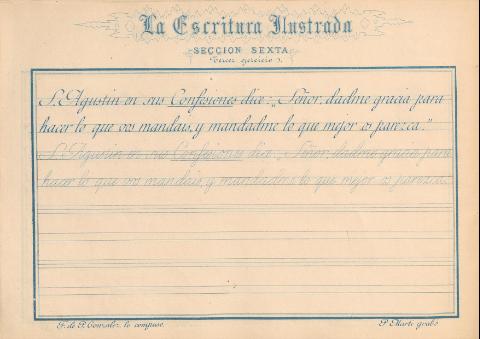 La Escritura Ilustrada
SECCION SEXTA
(Tercer ejercicio).
S. Agustin en sus Confesiones dice: „Señor, dadme gracia para
hacer lo que vos mandais, y mandadme lo que mejor os parezca."
S. Agustin en sus Confesiones dice: „Señor, dadme gracia para
hacer lo que vos mandais, y mandadme lo que mejor os parezca."
F. de P. Gonzalez, lo compuso.
P. Marti grabó